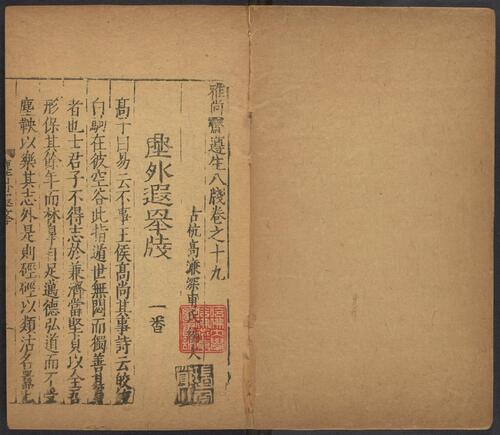 雅尚齋遵生八牋卷之十九
古杭高濂深甫氏編次
塵外遐舉牋 一卷
高子曰易云不事王侯高尚其事詩云皎皎
白駒在彼空谷此指遁世無悶而獨善其身
者也士君子不得志於兼濟當堅貞以全吾
形保其餘年而林皋自足邁德弘道而不受
塵鞅以樂其志外是則硜硜以類沽名